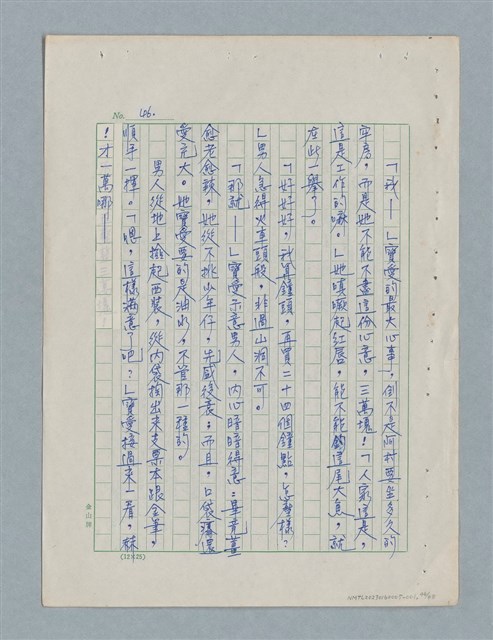 No. 106.
「我——」寶愛的最大心事,倒不是阿村要坐多久的
牢房,而是她不能不盡這份心意,三萬塊!「人家這是,
這是工作的嘛。」她嗔噘起紅唇,能不能釣這尾大魚,就
在此一舉了。
「好好好,我算鐘頭,再買二十四個鐘點,怎麼樣?
」男人急得火車頭般,非過山洞不可。
「那就——」寶愛示意男人,內心暗暗得意:畢竟薑
愈老愈辣,她從不挑少年仔,先盛後衰;而且,口袋薄還
愛充大。她寶愛要的是油水,不管那一種的。
男人從地上撿起西裝,從內袋掏出來支票本跟金筆,
順手一揮。「嗯,這樣滿意了吧?」寶愛接過來一看,赫
!才一萬哪——
(12×25)